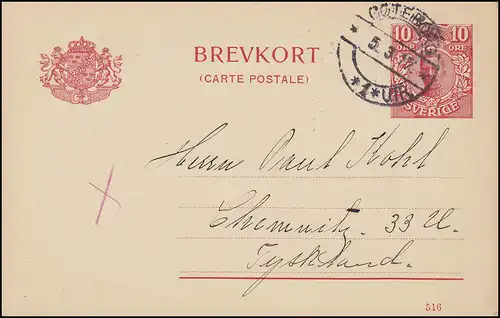 10 10
ÖRE ÖRE
SVERIGE
GÖTEBORG
5.3.17
*1*UTR.
BREVKORT
(CARTE POSTALE)
Herrn Paul Kohl
Chemnitz. 33 U.
Tyskland.
516